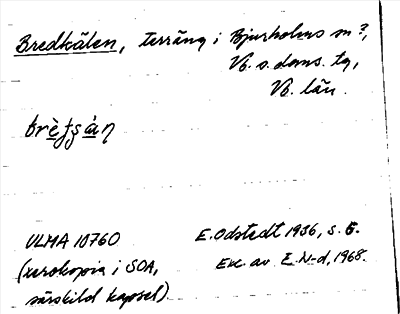 Bredkälen, terräng i Bjurholms sn?,
Vb. s. doms. tg,
Vb. län.
ULMA 10760
(xerokopia i SOA,
särskild kapsel)
E. Odstedt 1936, s. 5.
Exc. av E. N-d, 1968.